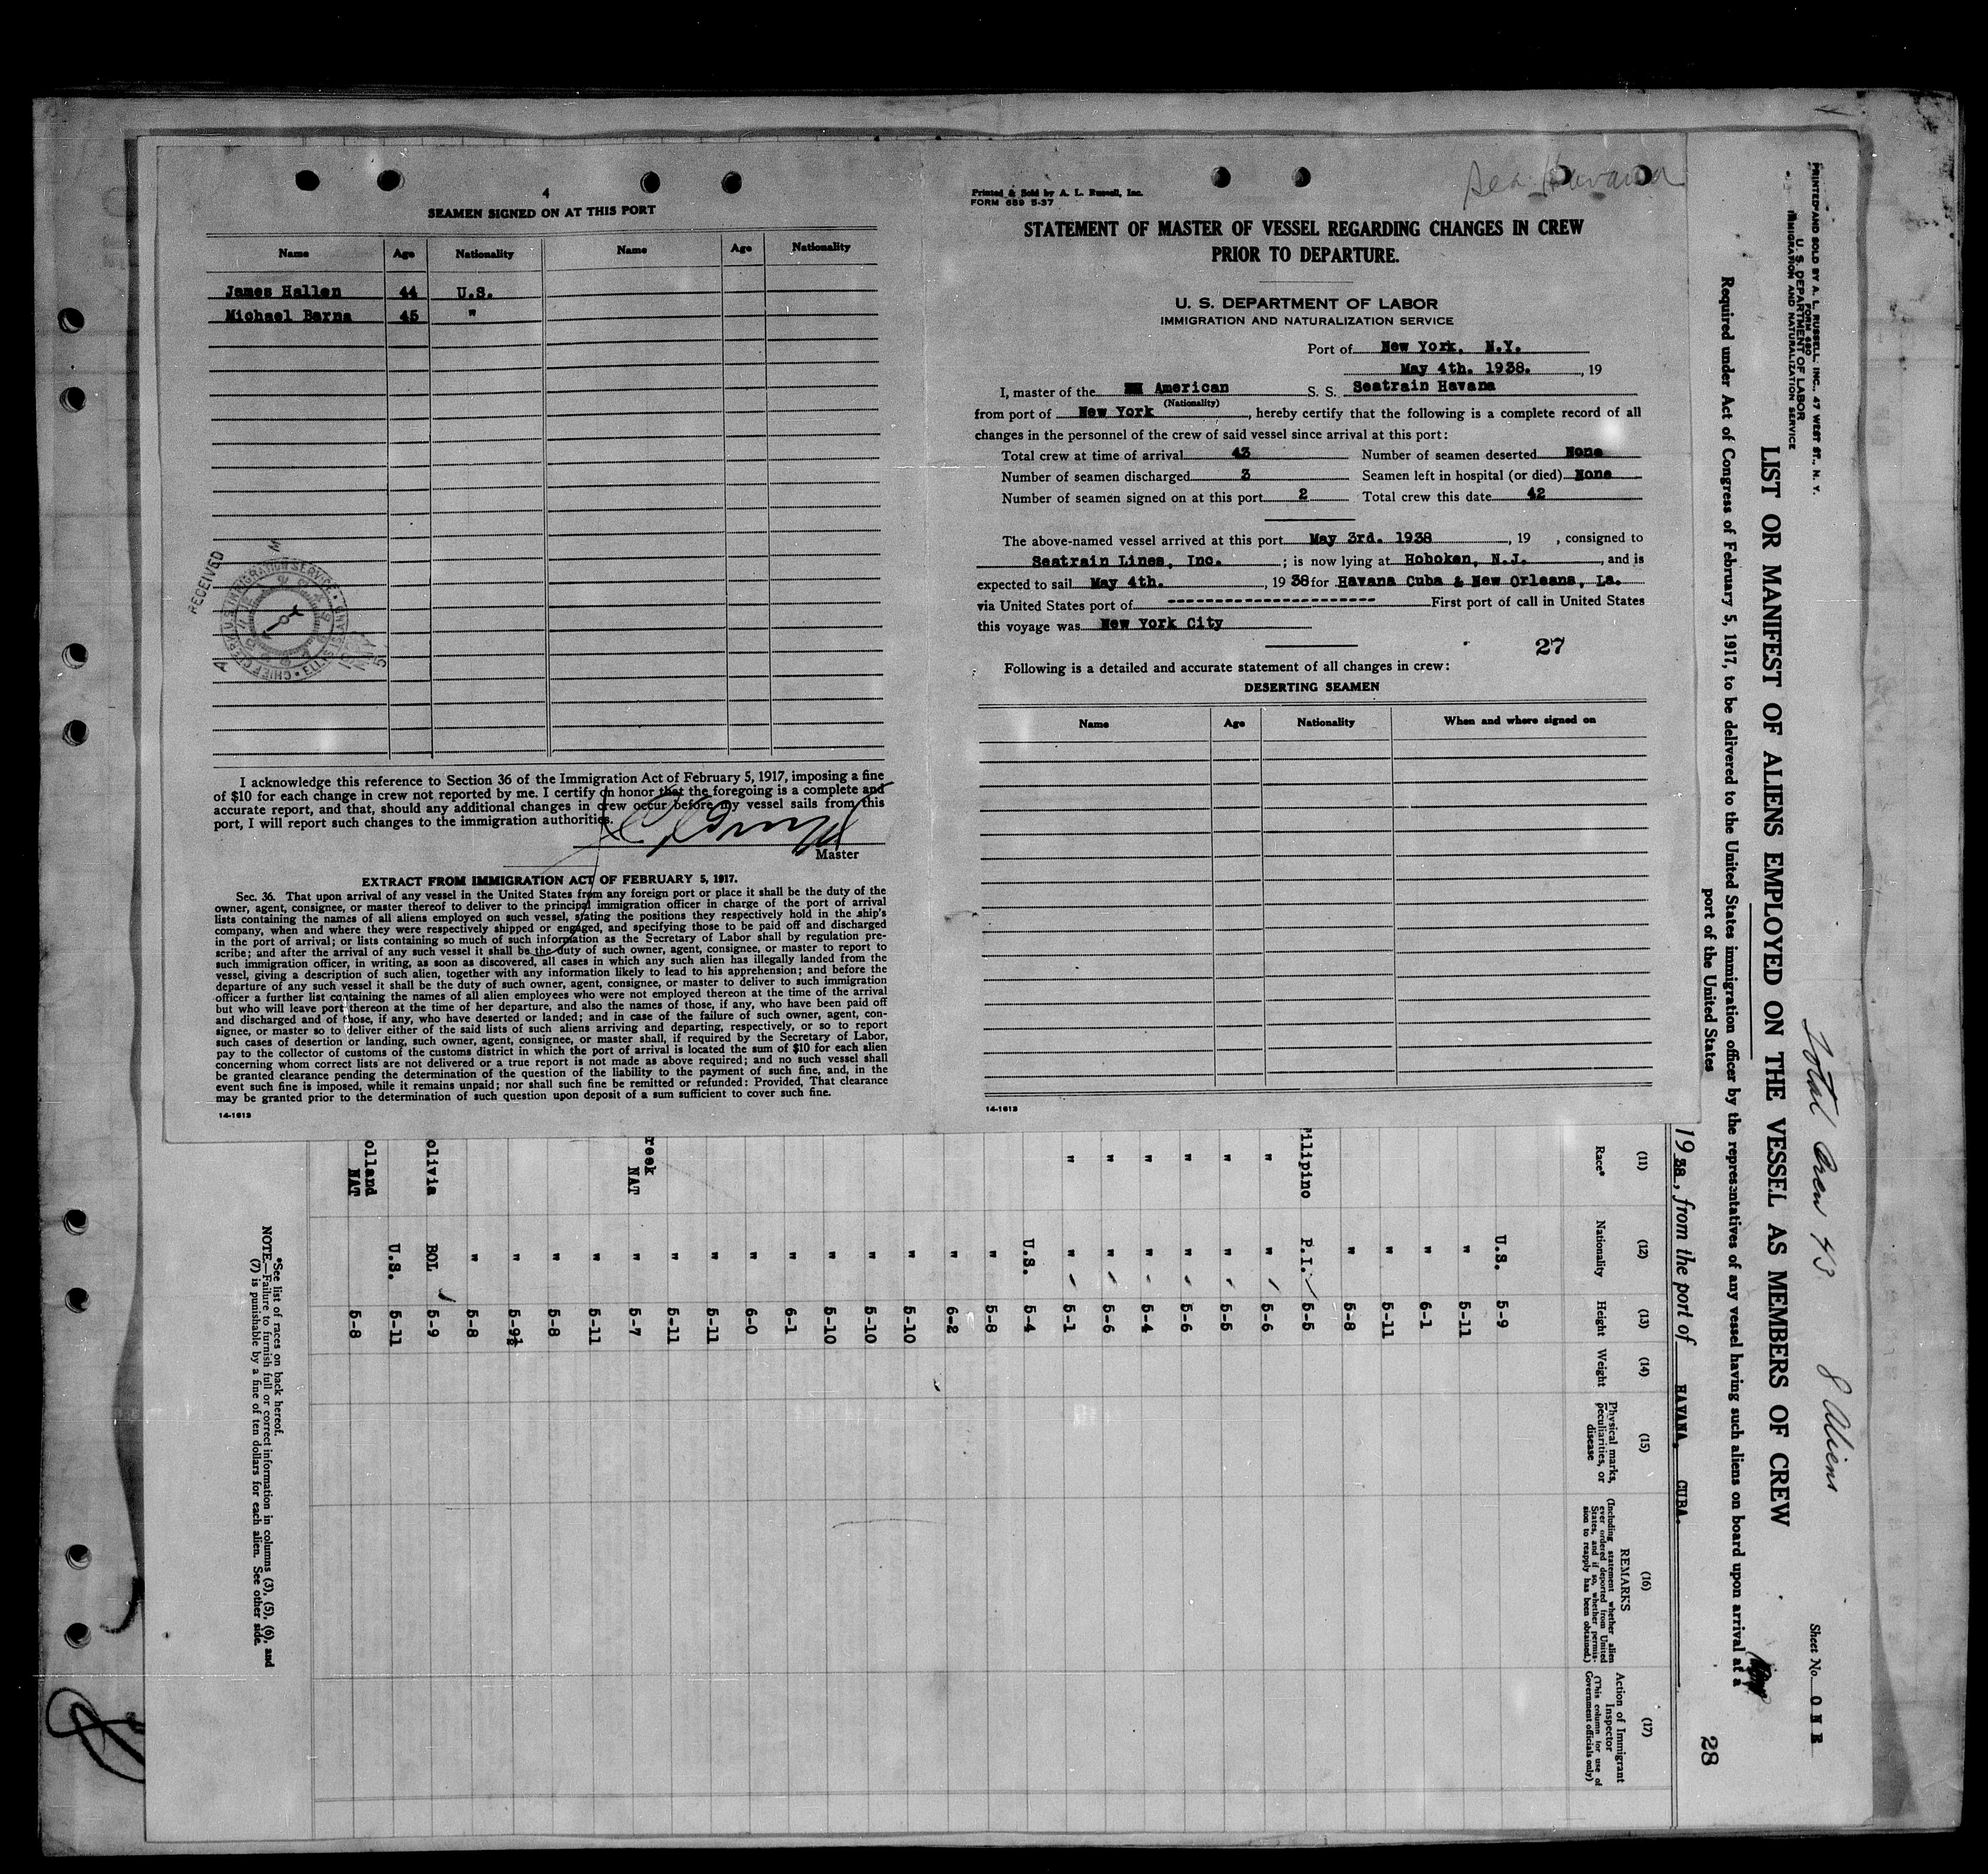 4
SEAMEN SIGNED ON AT THIS PORT
Name Age Nationality Name Age Nationality
James Hallen 44 U.S.
Michael Barna 45 "
RECEIVED
I acknowledge this reference to Section 36 of the Immigration Act of February 5, 1917, imposing a fine
of $10 for each change in crew not reported by me. I certify on honor that the foregoing is a complete and
accurate report, and that, should any additional changes in crew occur before my vessel sails from this
port, I will report such changes to the immigration authorities.
Master
EXTRACT FROM IMMIGRATION ACT OF FEBRUARY 5, 1917.
Sec. 36. That upon arrival of any vessel in the United States from any foreign port or place it shall be the duty of the
owner, agent, consignee, or master thereof to deliver to the principal immigration officer in charge of the port of arrival
lists containing the names of all aliens employed on such vessel, stating the positions they respectively hold in the ship's
company, when and where they were respectively shipped or engaged, and specifying those to be paid off and discharged
in the port of arrival; or lists containing so much of such information as the Secretary of Labor shall by regulation pre-
scribe; and after the arrival of any such vessel it shall be the duty of such owner, agent, consignee, or master to report to
such immigration officer, in writing, as soon as discovered, all cases in which any such alien has illegally landed from the
vessel, giving a description of such alien, together with any information likely to lead to his apprehension; and before the
departure of any such vessel it shall be the duty of such owner, agent, consignee, or master to deliver to such immigration
officer a further list containing the names of all alien employees who were not employed thereon at the time of the arrival
but who will leave port thereon at the time of her departure, and also the names of those, if any, who have been paid off
and discharged and of those, if any, who have deserted or landed; and in case of the failure of such owner, agent, con-
signee, or master so to deliver either of the said lists of such aliens arriving and departing, respectively, or so to report
such cases of desertion or landing, such owner, agent, consignee, or master shall, if required by the Secretary of Labor,
pay to the collector of customs of the customs district in which the port of arrival is located the sum of $10 for each alien
concerning whom correct lists are not delivered or a true report is not made as above required; and no such vessel shall
be granted clearance pending the determination of the question of the liability to the payment of such fine, and, in the
event such fine is imposed, while it remains unpaid; nor shall such fine be remitted or refunded: Provided, That clearance
may be granted prior to the determination of such question upon deposit of a sum sufficient to cover such fine.
14-1613
Sea Havana
Printed & Sold by A. L. Russell, Inc.
FORM 689 5-37
STATEMENT OF MASTER OF VESSEL REGARDING CHANGES IN CREW
PRIOR TO DEPARTURE.
U. S. DEPARTMENT OF LABOR
IMMIGRATION AND NATURALIZATION SERVICE
Port of New York, N.Y.
May 4th. 1938. , 19
I, master of the American S. S. Seatrain Havana
(Nationality)
from port of New York , hereby certify that the following is a complete record of all
changes in the personnel of the crew of said vessel since arrival at this port:
Total crew at time of arrival 43 Number of seamen deserted None
Number of seamen discharged 3 Seamen left in hospital (or died) None
Number of seamen signed on at this port 2 Total crew this date 42
The above-named vessel arrived at this port May 3rd. 1938 , 19 , consigned to
Seatrain Lines, Inc. ; is now lying at Hoboken, N.J. , and is
expected to sail May 4th. , 1938 for Havana Cuba & New Orleans, La.
via United States port of ---------------------- First port of call in United States
this voyage was New York City
27
Following is a detailed and accurate statement of all changes in crew:
DESERTING SEAMEN
Name Age Nationality When and where signed on
14-1613
PRINTED AND SOLD BY A. L. RUSSELL, INC., 47 WEST ST., N. Y.
FORM 680
U. S. DEPARTMENT OF LABOR
IMMIGRATION AND NATURALIZATION SERVICE
Total Crew 43 8 Aliens
Sheet No. ONE
LIST OR MANIFEST OF ALIENS EMPLOYED ON THE VESSEL AS MEMBERS OF CREW
Required under Act of Congress of February 5, 1917, to be delivered to the United States immigration officer by the representatives of any vessel having such aliens on board upon arrival at a
port of the United States
28
1938, from the port of HAVANA, CUBA.
(11) (12) (13) (14) (15) (16) (17)
Race* Nationality Height Weight Physical marks, peculiarities, or disease REMARKS (Including statement whether alien ever ordered deported from United States, and if so, whether permis-sion to reapply has been obtained.) Action of Immigrant Inspector (This column for use of Government officials only)
U.S. 5-9
" 5-11
" 6-1
" 5-11
" 5-8
ilipino P.I. 5-5
" " 5-6
" " 5-5
" " 5-6
" " 5-4
" " 5-6
" " 5-1
U.S. 5-4
" 5-8
" 6-2
" 5-10
" 5-10
" 5-10
" 6-1
" 6-0
" 5-11
" 5-11
reek NAT " 5-7
" 5-11
" 5-8
" 5-9½
" 5-8
olivia BOL 5-9
U.S. 5-11
olland NAT 5-8
*See list of races on back hereof.
NOTE.—Failure to furnish full or correct information in columns (3), (5), (6), and
(7) is punishable by a fine of ten dollars for each alien. See other side.